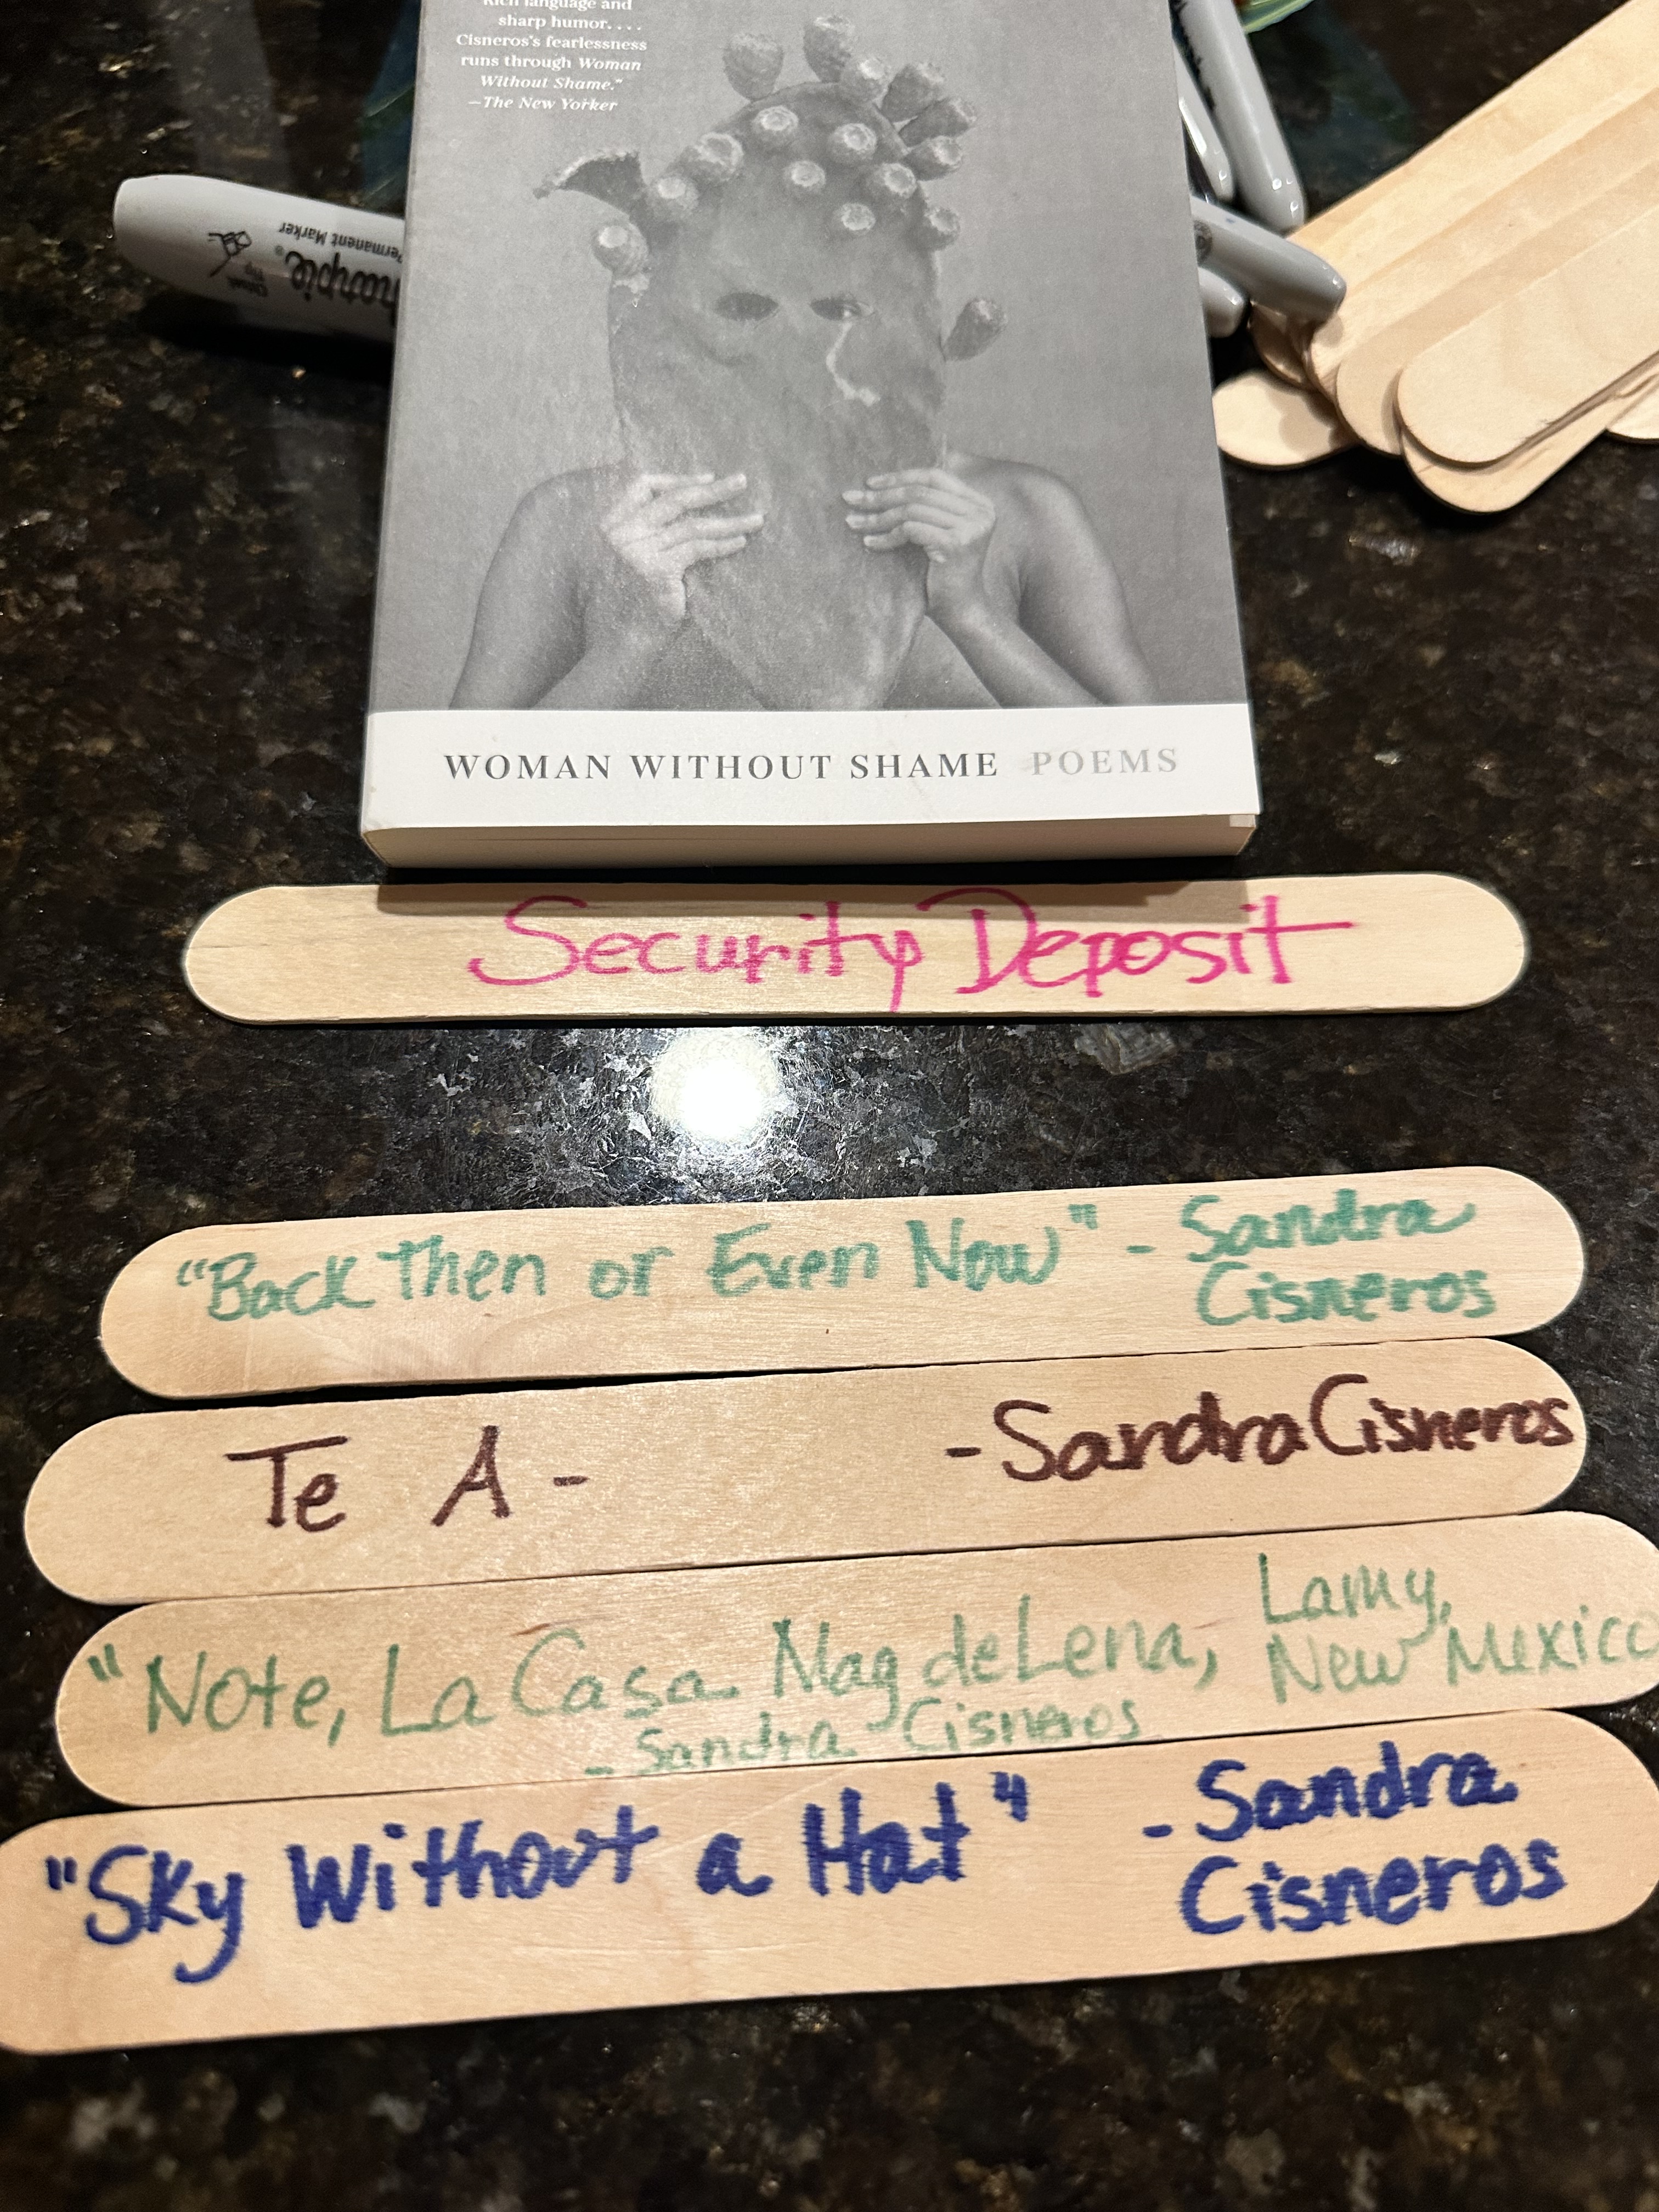 Rich language and
sharp humor. . . .
Cisneros's fearlessness
runs through Woman
Without Shame."
—The New Yorker
Sharpie®
Permanent Marker
WOMAN WITHOUT SHAME POEMS
Security Deposit
"Back Then or Even Now" - Sandra
Cisneros
Te A - - Sandra Cisneros
"Note, La Casa MagdeLena, Lamy,
New Mexico
- Sandra Cisneros
"Sky Without a Hat" - Sandra
Cisneros